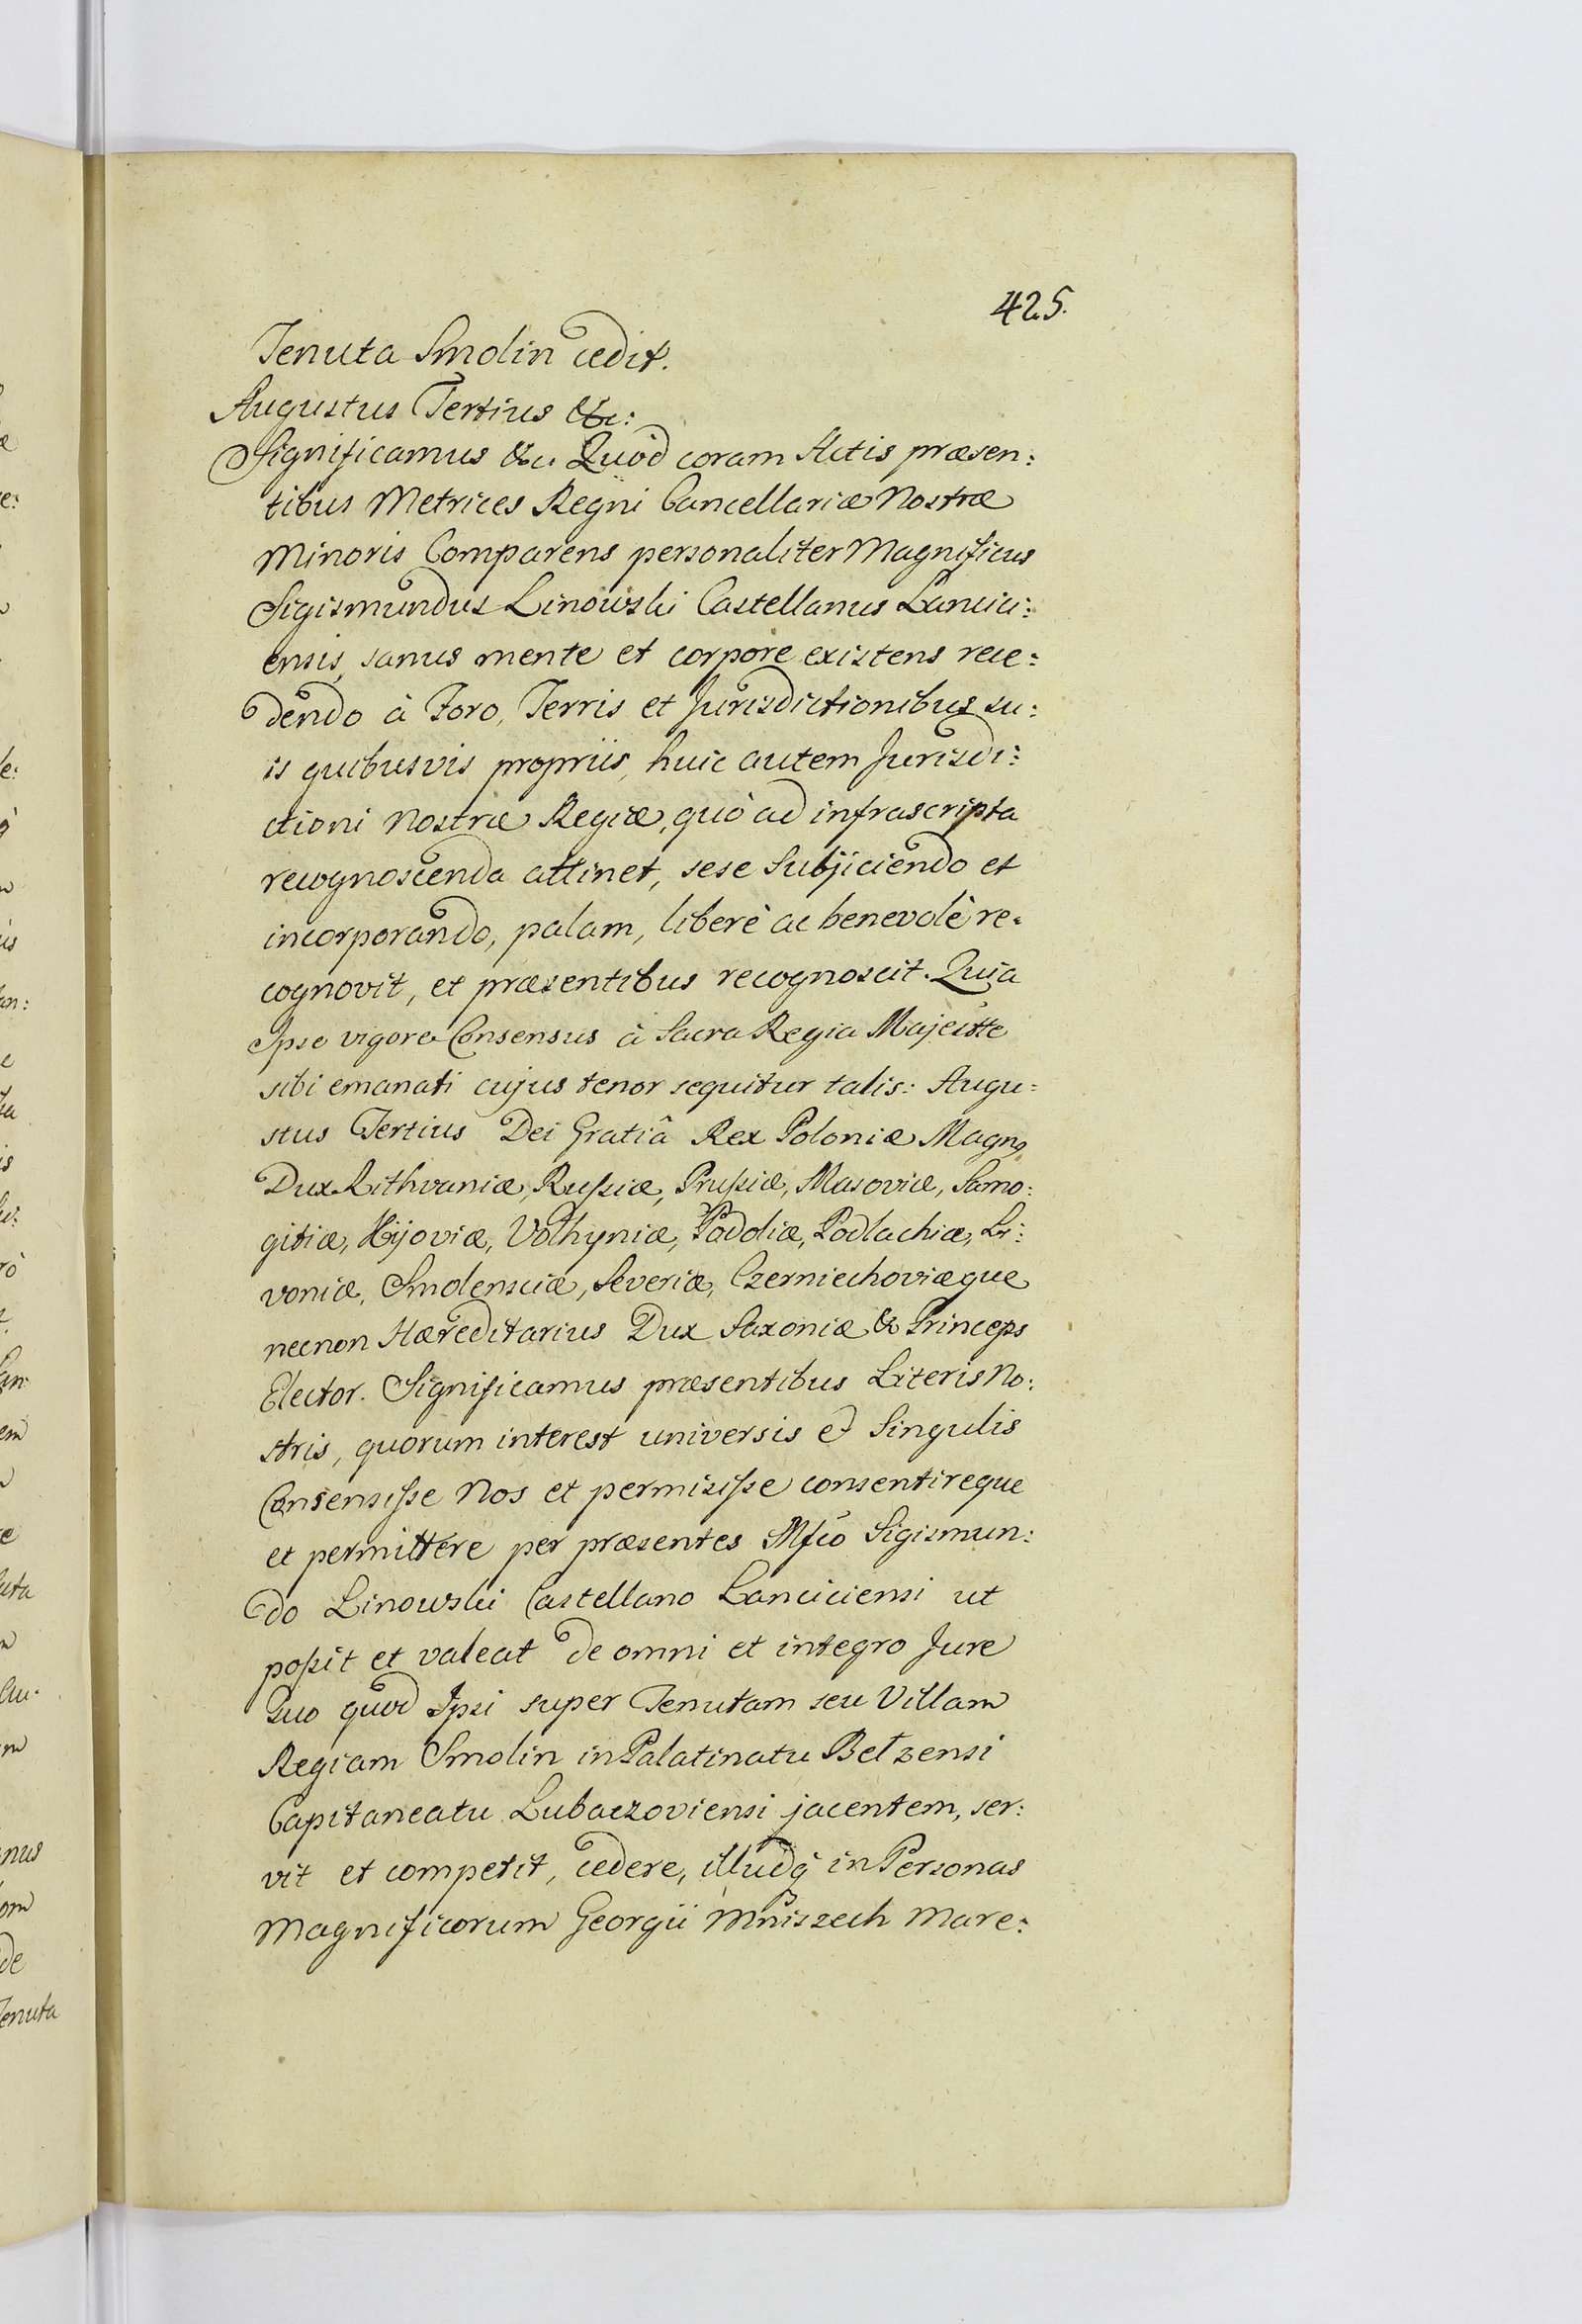 425.
Tenuta Smolin cedit.
Augustus Tertius &c:
Significamus &c. Quòd coram Actis præsen:
tibus Metrices Regni Cancellariæ Nostræ
Minoris Comparens personaliter Magnificus
Sigismundus Linowski Castellanus Lancici:
ensis, sanus mente et corpore existens rece:
dendo à Foro, Terris et Jurisdictionibus su:
is quibusvis propriis, huic autem Jurisdi:
ctioni Nostræ Regiæ, quò ad infrascripta
recognoscenda attinet, sese Subjiciendo et
incorporando, palam, liberè ac benevolè re:
cognovit, et præsentibus recognoscit. Quia
Ipse vigore Consensus à Sacra Regia Majestte
sibi emanati cujus tenor sequitur talis: Augu:
stus Tertius Dei Gratiâ Rex Poloniæ Magng
Dux Lithvaniæ, Rußiæ, Prußiæ, Masoviæ, Samo:
gitiæ, Kijoviæ, Volhyniæ, Podoliæ, Podlachiæ, Li:
voniæ, Smolensciæ, Severiæ, Czerniechoviæque
necnon Hæreditarius Dux Saxoniæ & Princeps
Elector. Significamus præsentibus Literis No:
stris, quorum interest universis et Singulis
Consensiße Nos et permisiße consentireque
et permittere per præsentes Mfco Sigismun:
do Linowski Castellano Lanciciensi ut
poßit et valeat de omni et integro Jure
Suo quod Ipsi super Tenutam seu Villam
Regiam Smolin in Palatinatu Bełzensi
Capitaneatu Lubaczoviensi jacentem, ser:
vit et competit, cedere, illudq in Personas
Magnificorum Georgii Mniszech Mare: